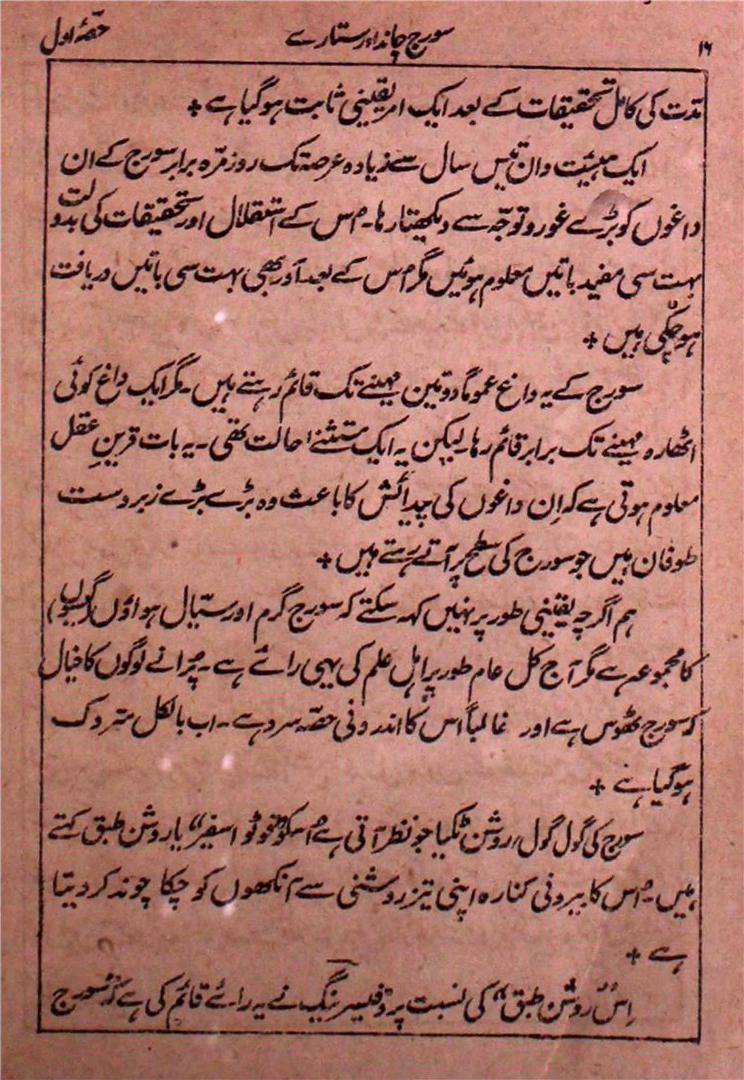 ۱۶ سورج چاند اور ستارے حصّۂ اول
مدّت کی کامل تحقیقات کے بعد ایک امر یقینی ثابت ہوگیا ہے +
ایک ہیئت دان تیس سال سے زیادہ عرصہ تک روز مرّہ برابر سورج کے ان
داغوں کو بڑے غور و توجّہ سے دیکھتا رہا۔ اُس کے استقلال اور تحقیقات کی بدولت
بہت سی مفید باتیں معلوم ہوئیں مگر اُس کے بعد اَور بھی بہت سی باتیں دریافت
ہوچکی ہیں +
سورج کے یہ داغ عموماً دو تین مہینے تک قائم رہتے ہیں۔ مگر ایک داغ کوئی
اٹھارہ مہینے تک برابر قائم رہا۔ لیکن یہ ایک مستثنےٰ حالت تھی۔ یہ بات قرینِ عقل
معلوم ہوتی ہے کہ اِن داغوں کی پیدائش کا باعث وہ بڑے بڑے زبردست
طوفان ہیں جو سورج کی سطح پر آتے رہتے ہیں +
ہم اگرچہ یقینی طور پر نہیں کہہ سکتے کہ سورج گرم اور سیّال ہواؤں (گیسوں)
کا مجموعہ ہے مگر آج کل عام طور پر اہل علم کی یہی رائے ہے۔ پُرانے لوگوں کا خیال
کہ سورج ٹھوس ہے اور غالباً اس کا اندرونی حصّہ سرد ہے۔ اب بالکل متروک
ہوگیا ہے +
سورج کی گول گول، روشن ٹکیا جو نظر آتی ہے اُسکو "فوٹو اسفیر" یا روشن طبق کہتے
ہیں۔ اُس کا بیرونی کنارہ اپنی تیز روشنی سے آنکھوں کو چکا چوند کر دیتا
ہے +
اِس "روشن طبق" کی نسبت پروفیسر ینگ نے یہ رائے قائم کی ہے کہ "سورج